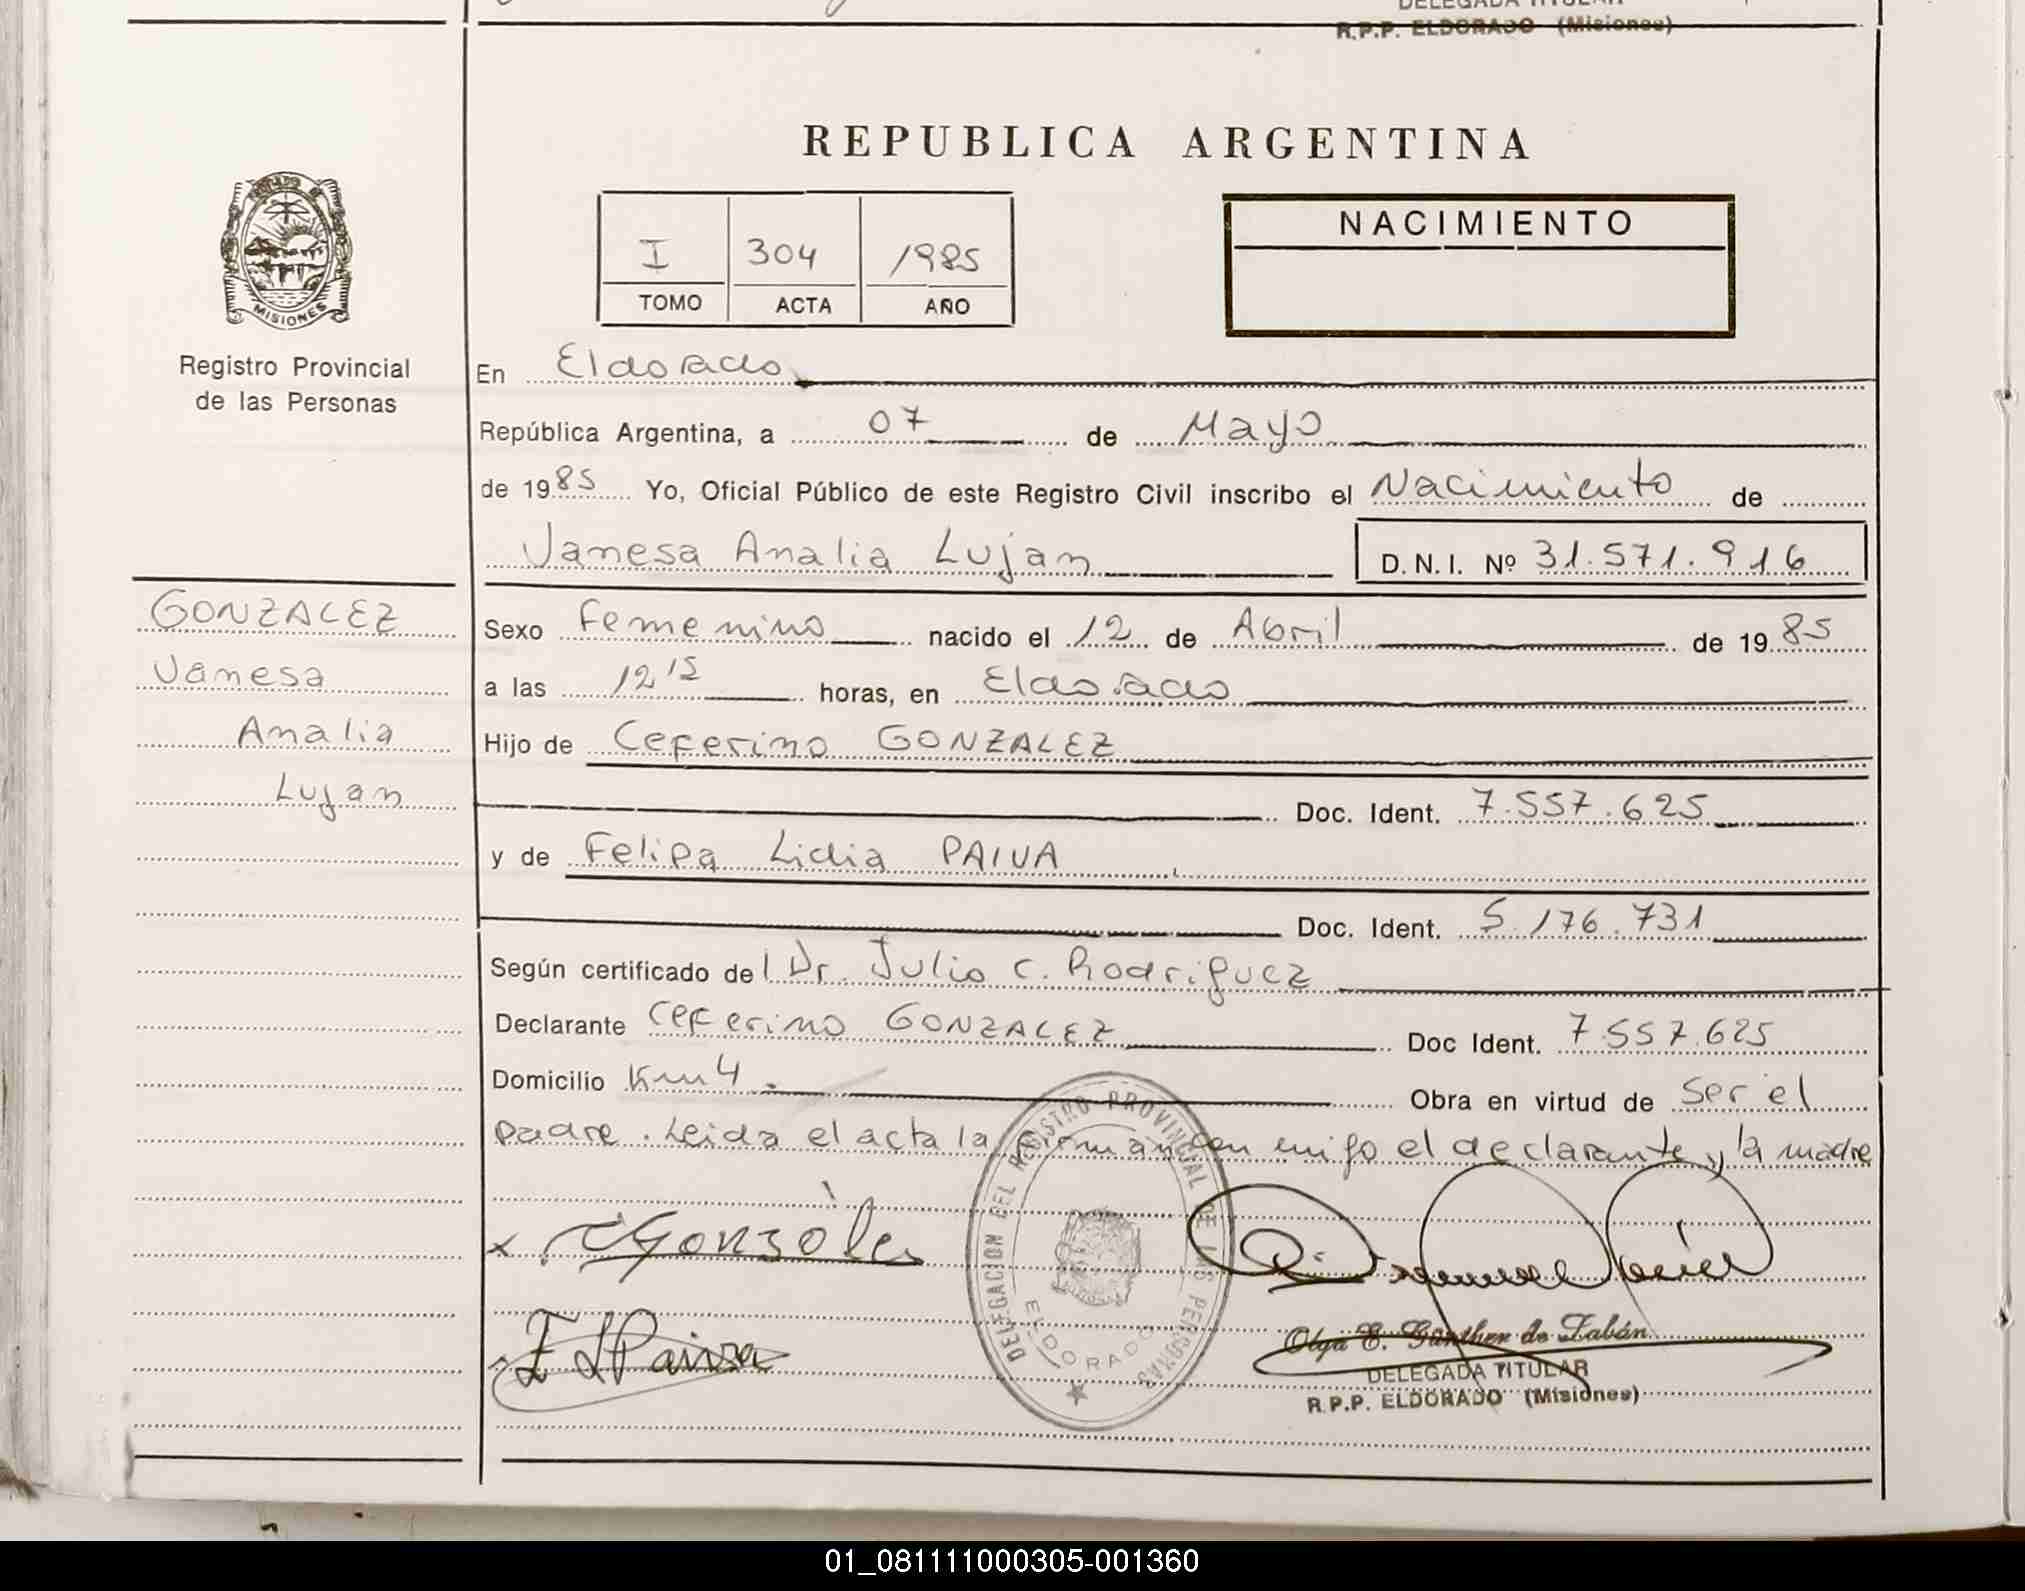 DELEGADA TITULAR
R.P.P. ELDORADO (Misiones)
REPUBLICA ARGENTINA
MISIONES
Registro Provincial
de las Personas
I 304 1985
TOMO ACTA AÑO
NACIMIENTO
En Eldorado
República Argentina, a 07 de Mayo
de 1985 Yo, Oficial Público de este Registro Civil inscribo el Nacimiento de
Vanesa Analia Lujan D.N.I. Nº 31.571.916
GONZALEZ
Vanesa
Analia
Lujan
Sexo Femenino nacido el 12 de Abril de 1985
a las 12 15 horas, en Eldorado
Hijo de Ceferino GONZALEZ
Doc. Ident. 7.557.625
y de Felipa Lidia PAIVA
Doc. Ident. 5.176.731
Según certificado del Dr. Julio C. Rodriguez
Declarante Ceferino GONZALEZ Doc Ident. 7.557.625
Domicilio Km 4. Obra en virtud de ser el
padre. Leida el acta la firman con migo el declarante y la madre
x Gonzàles
F L Paiva
DELEGACION DEL REGISTRO PROVINCIAL DE LAS PERSONAS
ELDORADO
Olga E. Günther de Zabán
DELEGADA TITULAR
R.P.P. ELDORADO (Misiones)
01_081111000305-001360